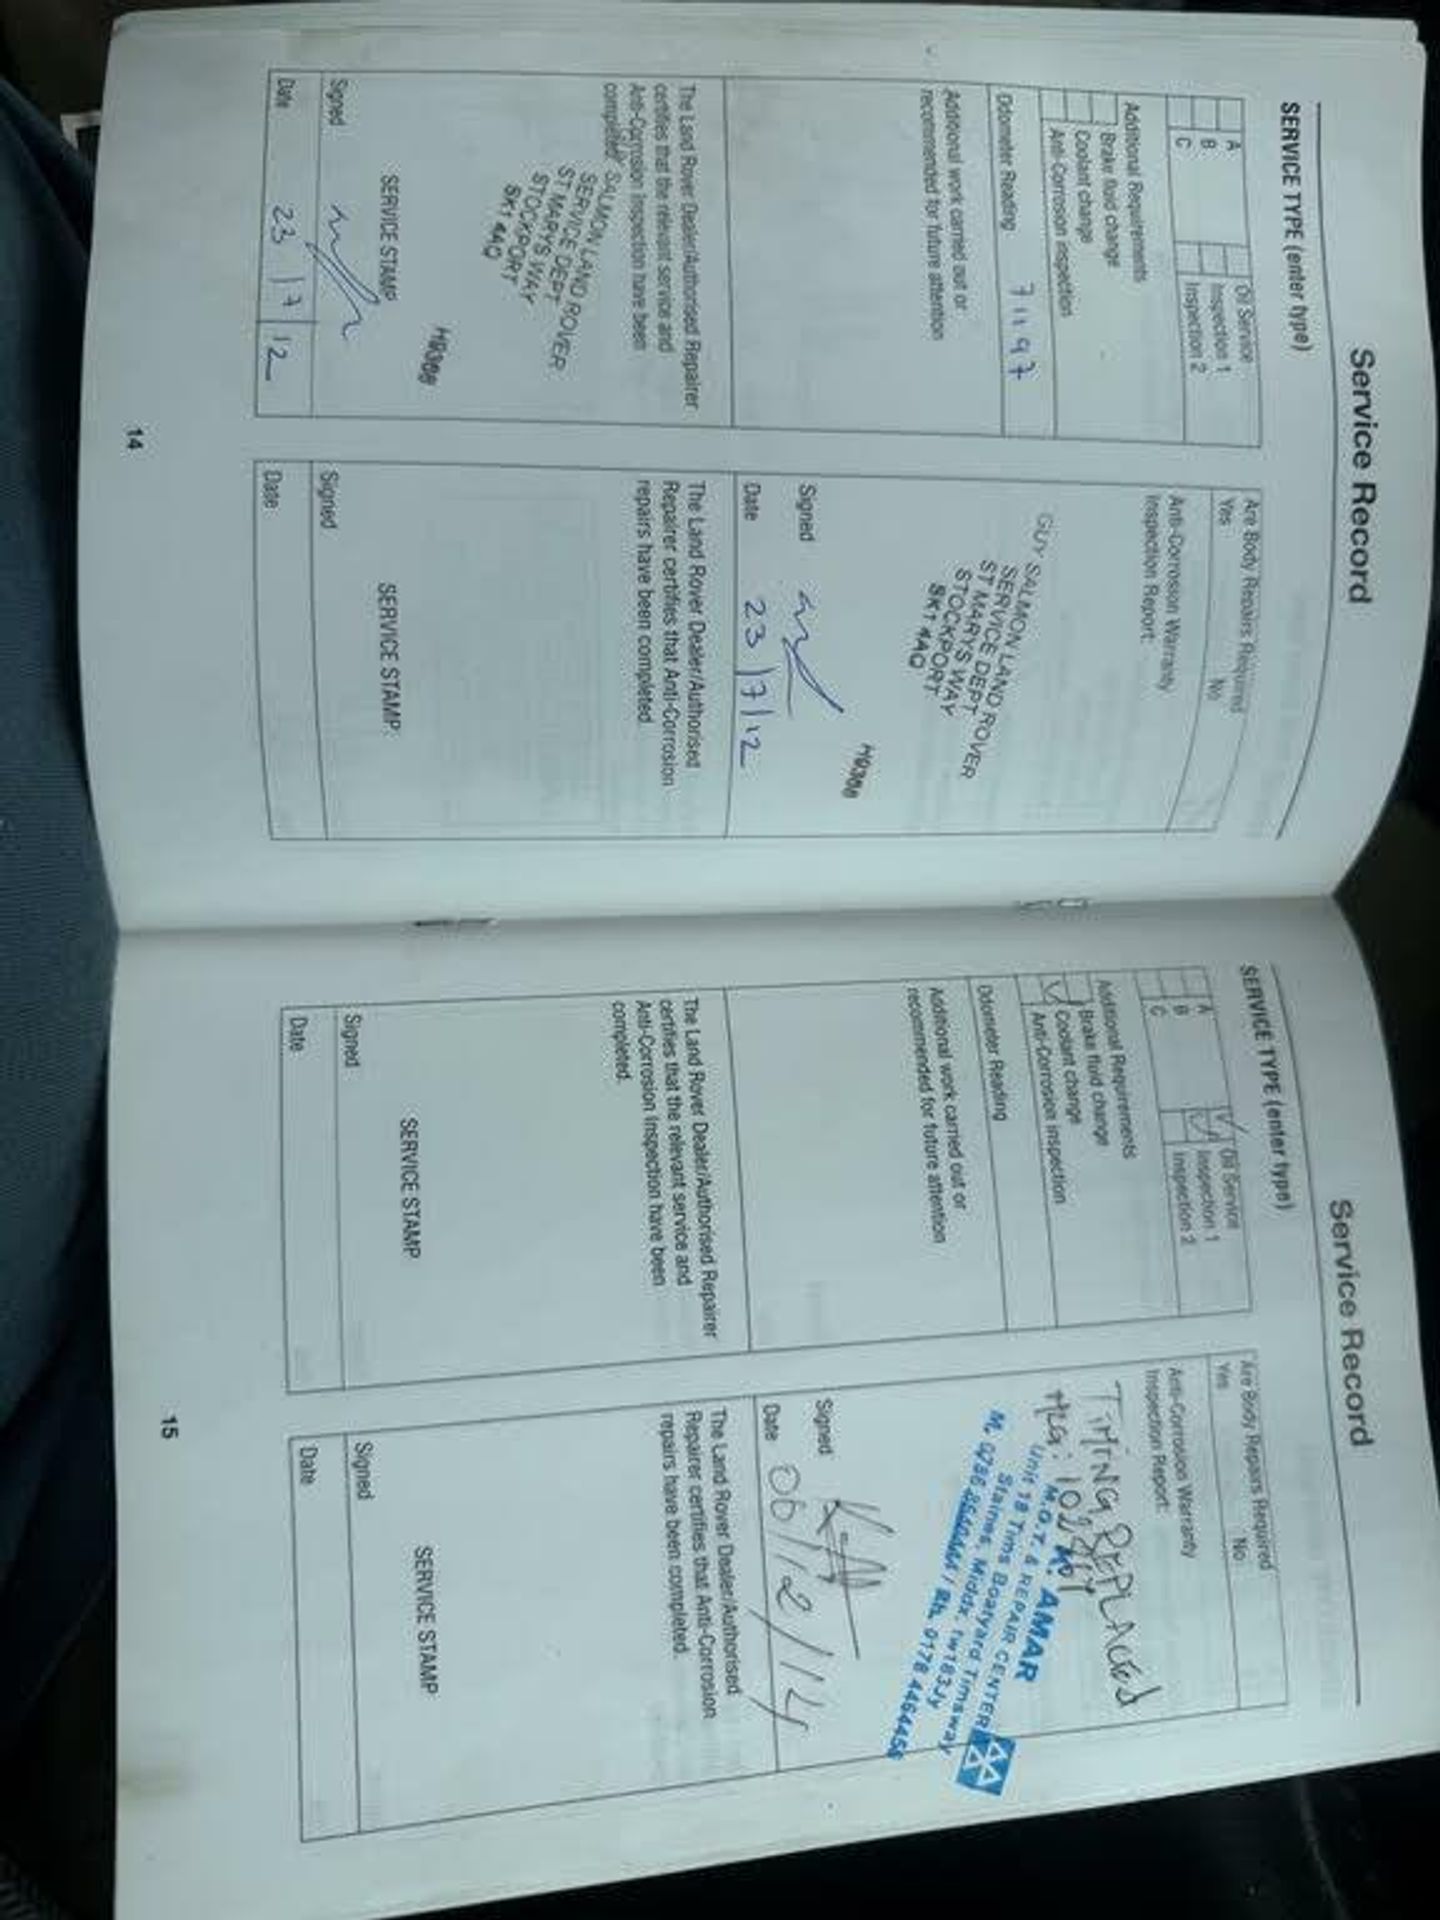 Service Record
SERVICE TYPE (enter type)
A
B
C
Oil Service
Inspection 1
Inspection 2
Additional Requirements
Brake fluid change
Coolant change
Anti-Corrosion inspection
Odometer Reading 71197
Additional work carried out or
recommended for future attention
The Land Rover Dealer/Authorised Repairer
certifies that the relevant service and
Anti-Corrosion Inspection have been
completed.
SALMON LAND ROVER
SERVICE DEPT
ST MARYS WAY
STOCKPORT
SK1 4AQ
SERVICE STAMP
Signed
Date 23/7/12
Are Body Repairs Required
Yes No
Anti-Corrosion Warranty
Inspection Report:
GUY SALMON LAND ROVER
SERVICE DEPT
ST MARYS WAY
STOCKPORT
SK1 4AQ
Signed
Date 23/7/12
The Land Rover Dealer/Authorised
Repairer certifies that Anti-Corrosion
repairs have been completed.
SERVICE STAMP
Signed
Date
14
Service Record
SERVICE TYPE (enter type)
A
B
C
Oil Service
Inspection 1
Inspection 2
Additional Requirements
Brake fluid change
Coolant change
Anti-Corrosion inspection
Odometer Reading
Additional work carried out or
recommended for future attention
The Land Rover Dealer/Authorised Repairer
certifies that the relevant service and
Anti-Corrosion Inspection have been
completed.
SERVICE STAMP
Signed
Date
Are Body Repairs Required
Yes No
Anti-Corrosion Warranty
Inspection Report:
TIMING REPLACED
K. AMAR
M.O.T. & REPAIR CENTER
Unit 18 Tims Boatyard Timsway
Staines, Middx. tw183Jy
Signed
Date 06/12/14
The Land Rover Dealer/Authorised
Repairer certifies that Anti-Corrosion
repairs have been completed.
SERVICE STAMP
Signed
Date
15